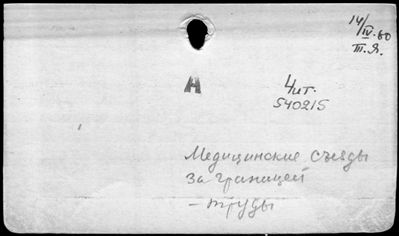 14/IV.60
III.Я.
А
Чит.
540215
Медицинские съезды
за границей
— труды